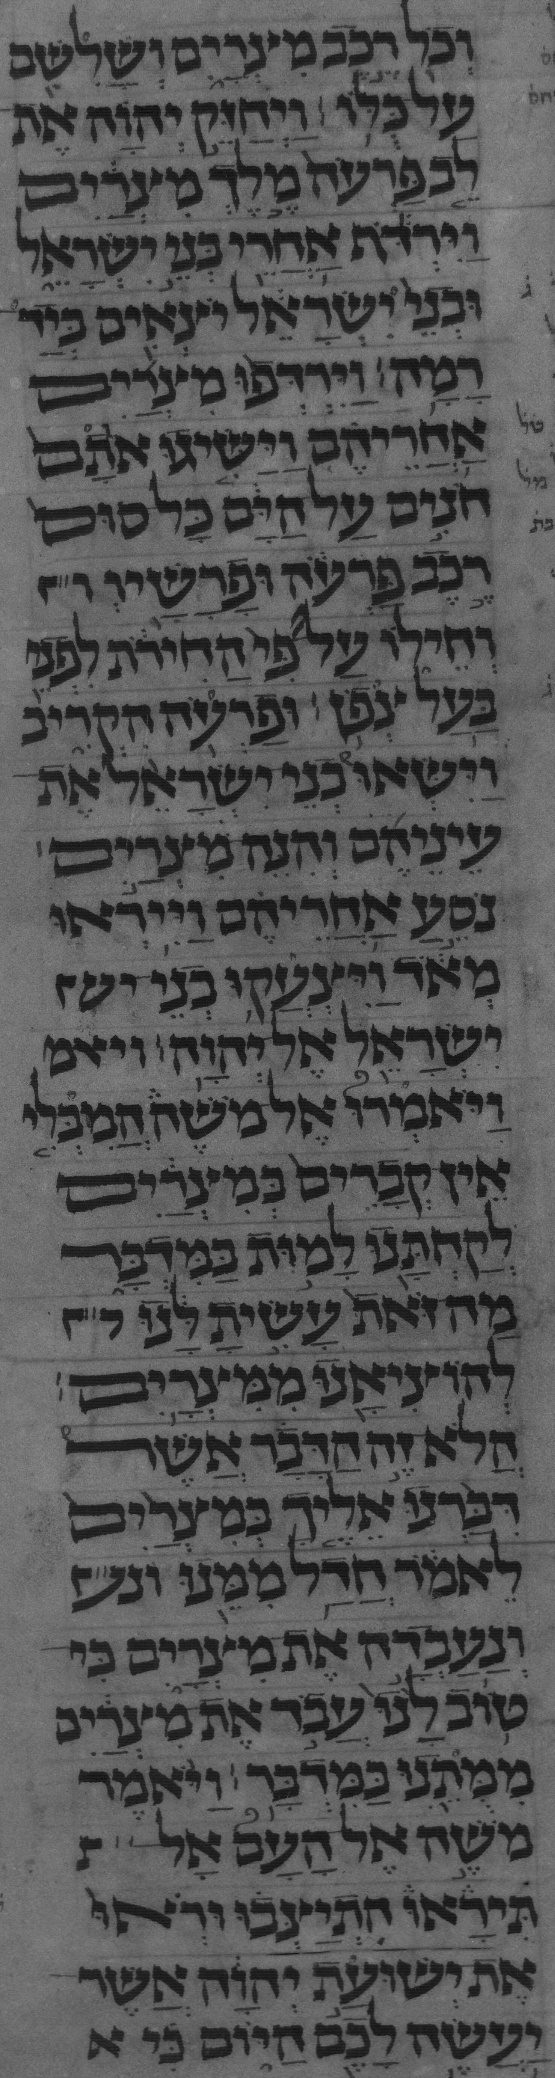 וכל רכב מצרים ושלשם
על כלו ויחזק יהוה את
לב פרעה מלך מצרים
וירדף אחרי בני ישראל
ובני ישראל יצאים ביד
רמה וירדפו מצרים
אחריהם וישיגו אתם
חנים על הים כל סוס
רכב פרעה ופרשיו ו
וחילו על פי החירת לפני
בעל צפן ופרעה הקריב
וישאו בני ישראל את
עיניהם והנה מצרים
נסע אחריהם וייראו
מאד ויצעקו בני יש
ישראל אל יהוה ויאמ
ויאמרו אל משה המבלי
אין קברים במצרים
לקחתנו למות במדבר
מה זאת עשית לנו ל
להוציאנו ממצרים
הלא זה הדבר אשר
דברנו אליך במצרים
לאמר חדל ממנו ונע
ונעבדה את מצרים כי
טוב לנו עבד את מצרים
ממתנו במדבר ויאמר
משה אל העם אל ת
תיראו התיצבו וראו
את ישועת יהוה אשר
יעשה לכם היום כי א